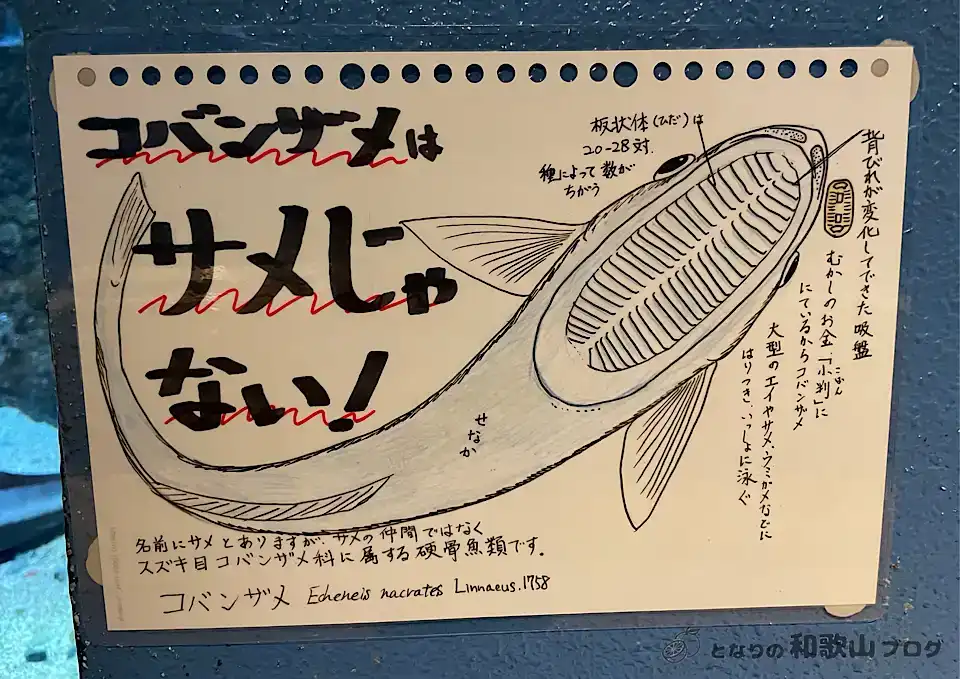 コバンザメは
サメじゃ
ない!
板状体(ひだ)は
20-28対.
種によって数が
ちがう
背びれが変化してできた吸盤
むかしのお金「小判」に
こばん
にているからコバンザメ
大型のエイやサメ・ウミガメなどに
はりつき、いっしょに泳ぐ
せなか
名前にサメとありますが、サメの仲間ではなく
スズキ目コバンザメ科に属する硬骨魚類です。
コバンザメ Echeneis nacrates Linnaeus.1758
となりの和歌山ブログ